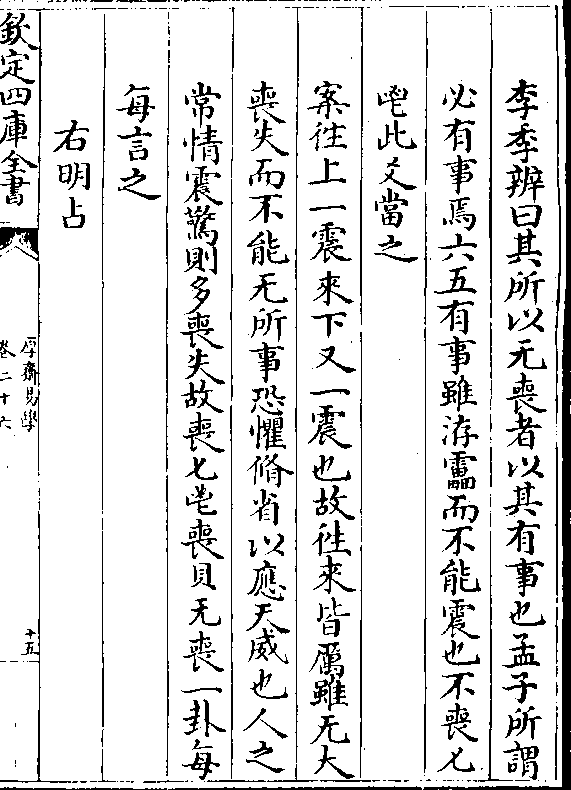 李季辨曰其所以无喪者以其有事也孟子所謂
必有事焉六五有事雖洊靁而不能震也不喪匕
鬯此爻當之
案往上一震來下又一震也故徃來皆厲雖无大
喪失而不能无所事恐懼脩省以應天威也人之
常情震驚則多喪失故喪匕鬯喪貝无喪一卦每
每言之
右明占
欽定四庫全書
厚齋易學
卷二十六
十五